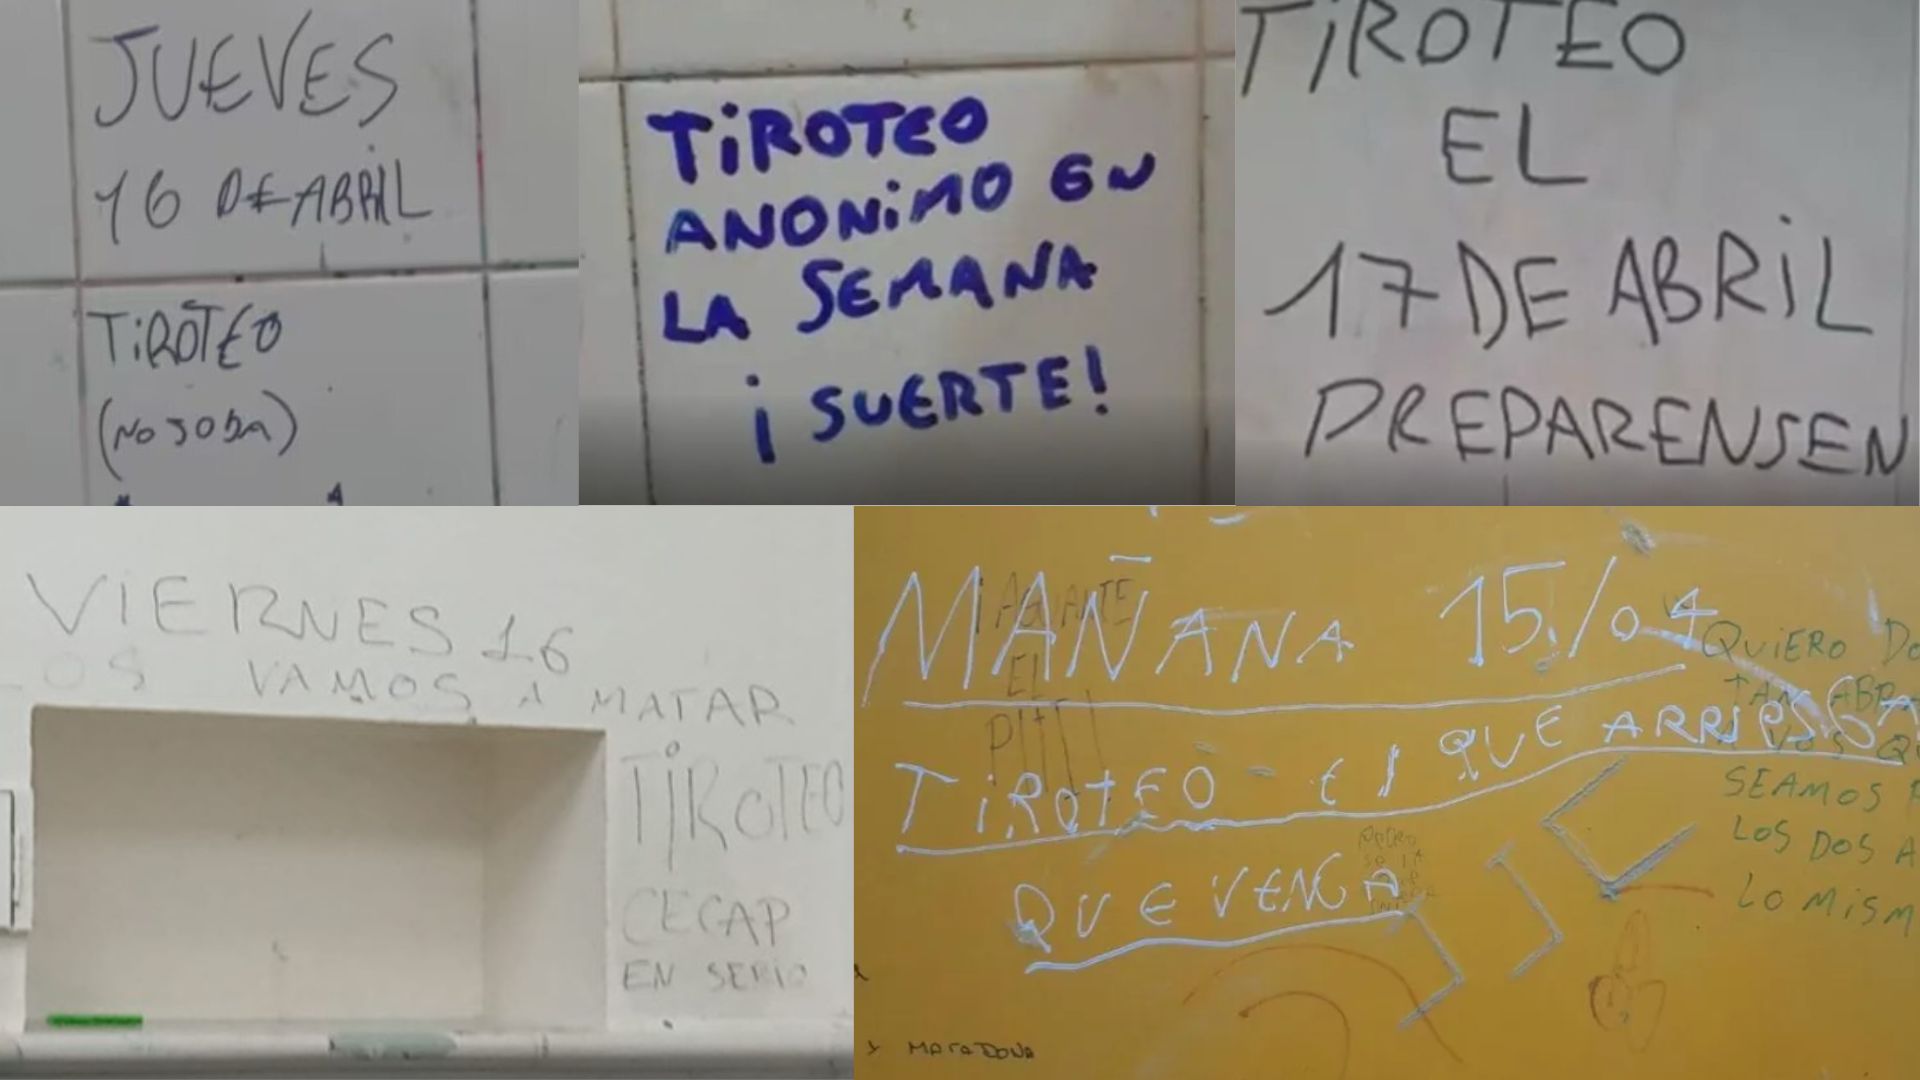 JUEVES
16 DE ABRIL
TiROTEO
(NO JODA)
TiROTEO
ANONiMO EN
LA SEMANA
¡SUERTE!
TiROTEO
EL
17 DE ABRiL
PREPARENSEN
VIERNES 16
LOS VAMOS A MATAR
TiROTEO
CECAP
EN SERIO
MAÑANA 15/04
TiROTEO El QUE ARRIESGA
QUE VENGA
AGUANTE
EL
QUiERO
TAN
A VOS
SEAMOS
LOS DOS A
LO MiSM
Y MARADONA